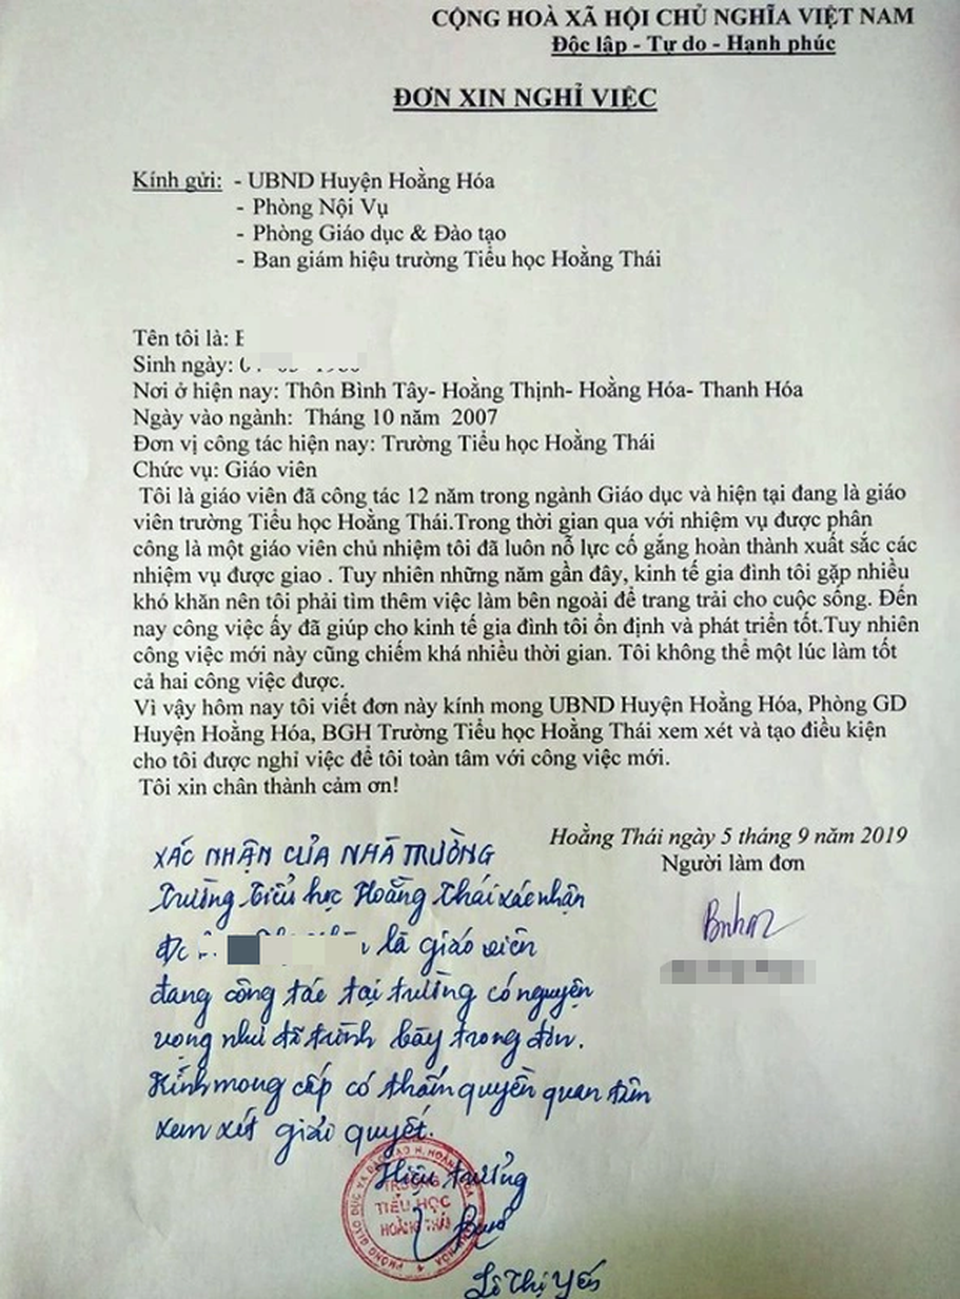 CỘNG HOÀ XÃ HỘI CHỦ NGHĨA VIỆT NAM
Độc lập - Tự do - Hạnh phúc
ĐƠN XIN NGHỈ VIỆC
Kính gửi: - UBND Huyện Hoằng Hóa
- Phòng Nội Vụ
- Phòng Giáo dục & Đào tạo
- Ban giám hiệu trường Tiểu học Hoằng Thái
Tên tôi là:
Sinh ngày:
Nơi ở hiện nay: Thôn Bình Tây- Hoằng Thịnh- Hoằng Hóa- Thanh Hóa
Ngày vào ngành: Tháng 10 năm 2007
Đơn vị công tác hiện nay: Trường Tiểu học Hoằng Thái
Chức vụ: Giáo viên
Tôi là giáo viên đã công tác 12 năm trong ngành Giáo dục và hiện tại đang là giáo
viên trường Tiểu học Hoằng Thái.Trong thời gian qua với nhiệm vụ được phân
công là một giáo viên chủ nhiệm tôi đã luôn nỗ lực cố gắng hoàn thành xuất sắc các
nhiệm vụ được giao . Tuy nhiên những năm gần đây, kinh tế gia đình tôi gặp nhiều
khó khăn nên tôi phải tìm thêm việc làm bên ngoài để trang trải cho cuộc sống. Đến
nay công việc ấy đã giúp cho kinh tế gia đình tôi ổn định và phát triển tốt.Tuy nhiên
công việc mới này cũng chiếm khá nhiều thời gian. Tôi không thể một lúc làm tốt
cả hai công việc được.
Vì vậy hôm nay tôi viết đơn này kính mong UBND Huyện Hoằng Hóa, Phòng GD
Huyện Hoằng Hóa, BGH Trường Tiểu học Hoằng Thái xem xét và tạo điều kiện
cho tôi được nghỉ việc để tôi toàn tâm với công việc mới.
Tôi xin chân thành cảm ơn!
Hoằng Thái ngày 5 tháng 9 năm 2019
Người làm đơn
XÁC NHẬN CỦA NHÀ TRƯỜNG
Trường tiểu học Hoằng Thái xác nhận
là giáo viên
đang công tác tại trường có nguyện
vọng như đã trình bày trong đơn.
Kính mong cấp có thẩm quyền quan tâm
xem xét giải quyết.
Hiệu trưởng
TRƯỜNG
TIỂU HỌC
HOẰNG THÁI
Lê Thị Yến